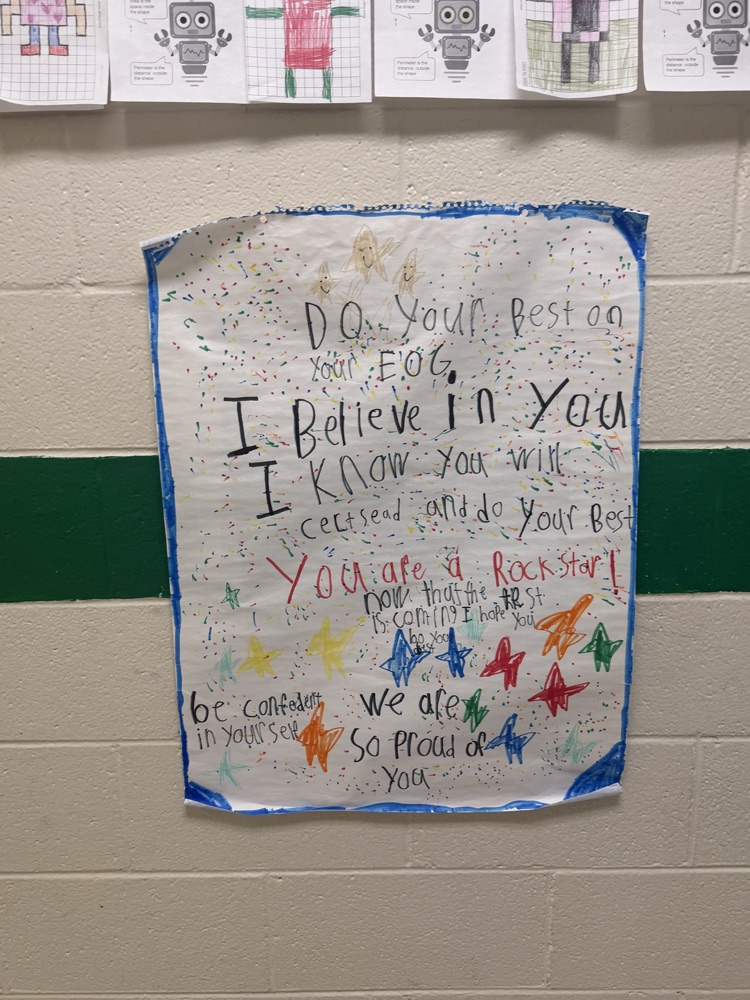 space inside
the shape
Perimeter is the
distance outside
the shape
space inside
the shape
Perimeter is the
distance outside
the shape
Perimeter is the
distance outside
the shape
DO Your Best on
your EOG.
I Believe in You
I Know You will
cectsead and do Your Best
You are a Rockstar!
now that the test
is coming I hope you
do your
best
be confedent
in yourself
we are
so Proud of
you